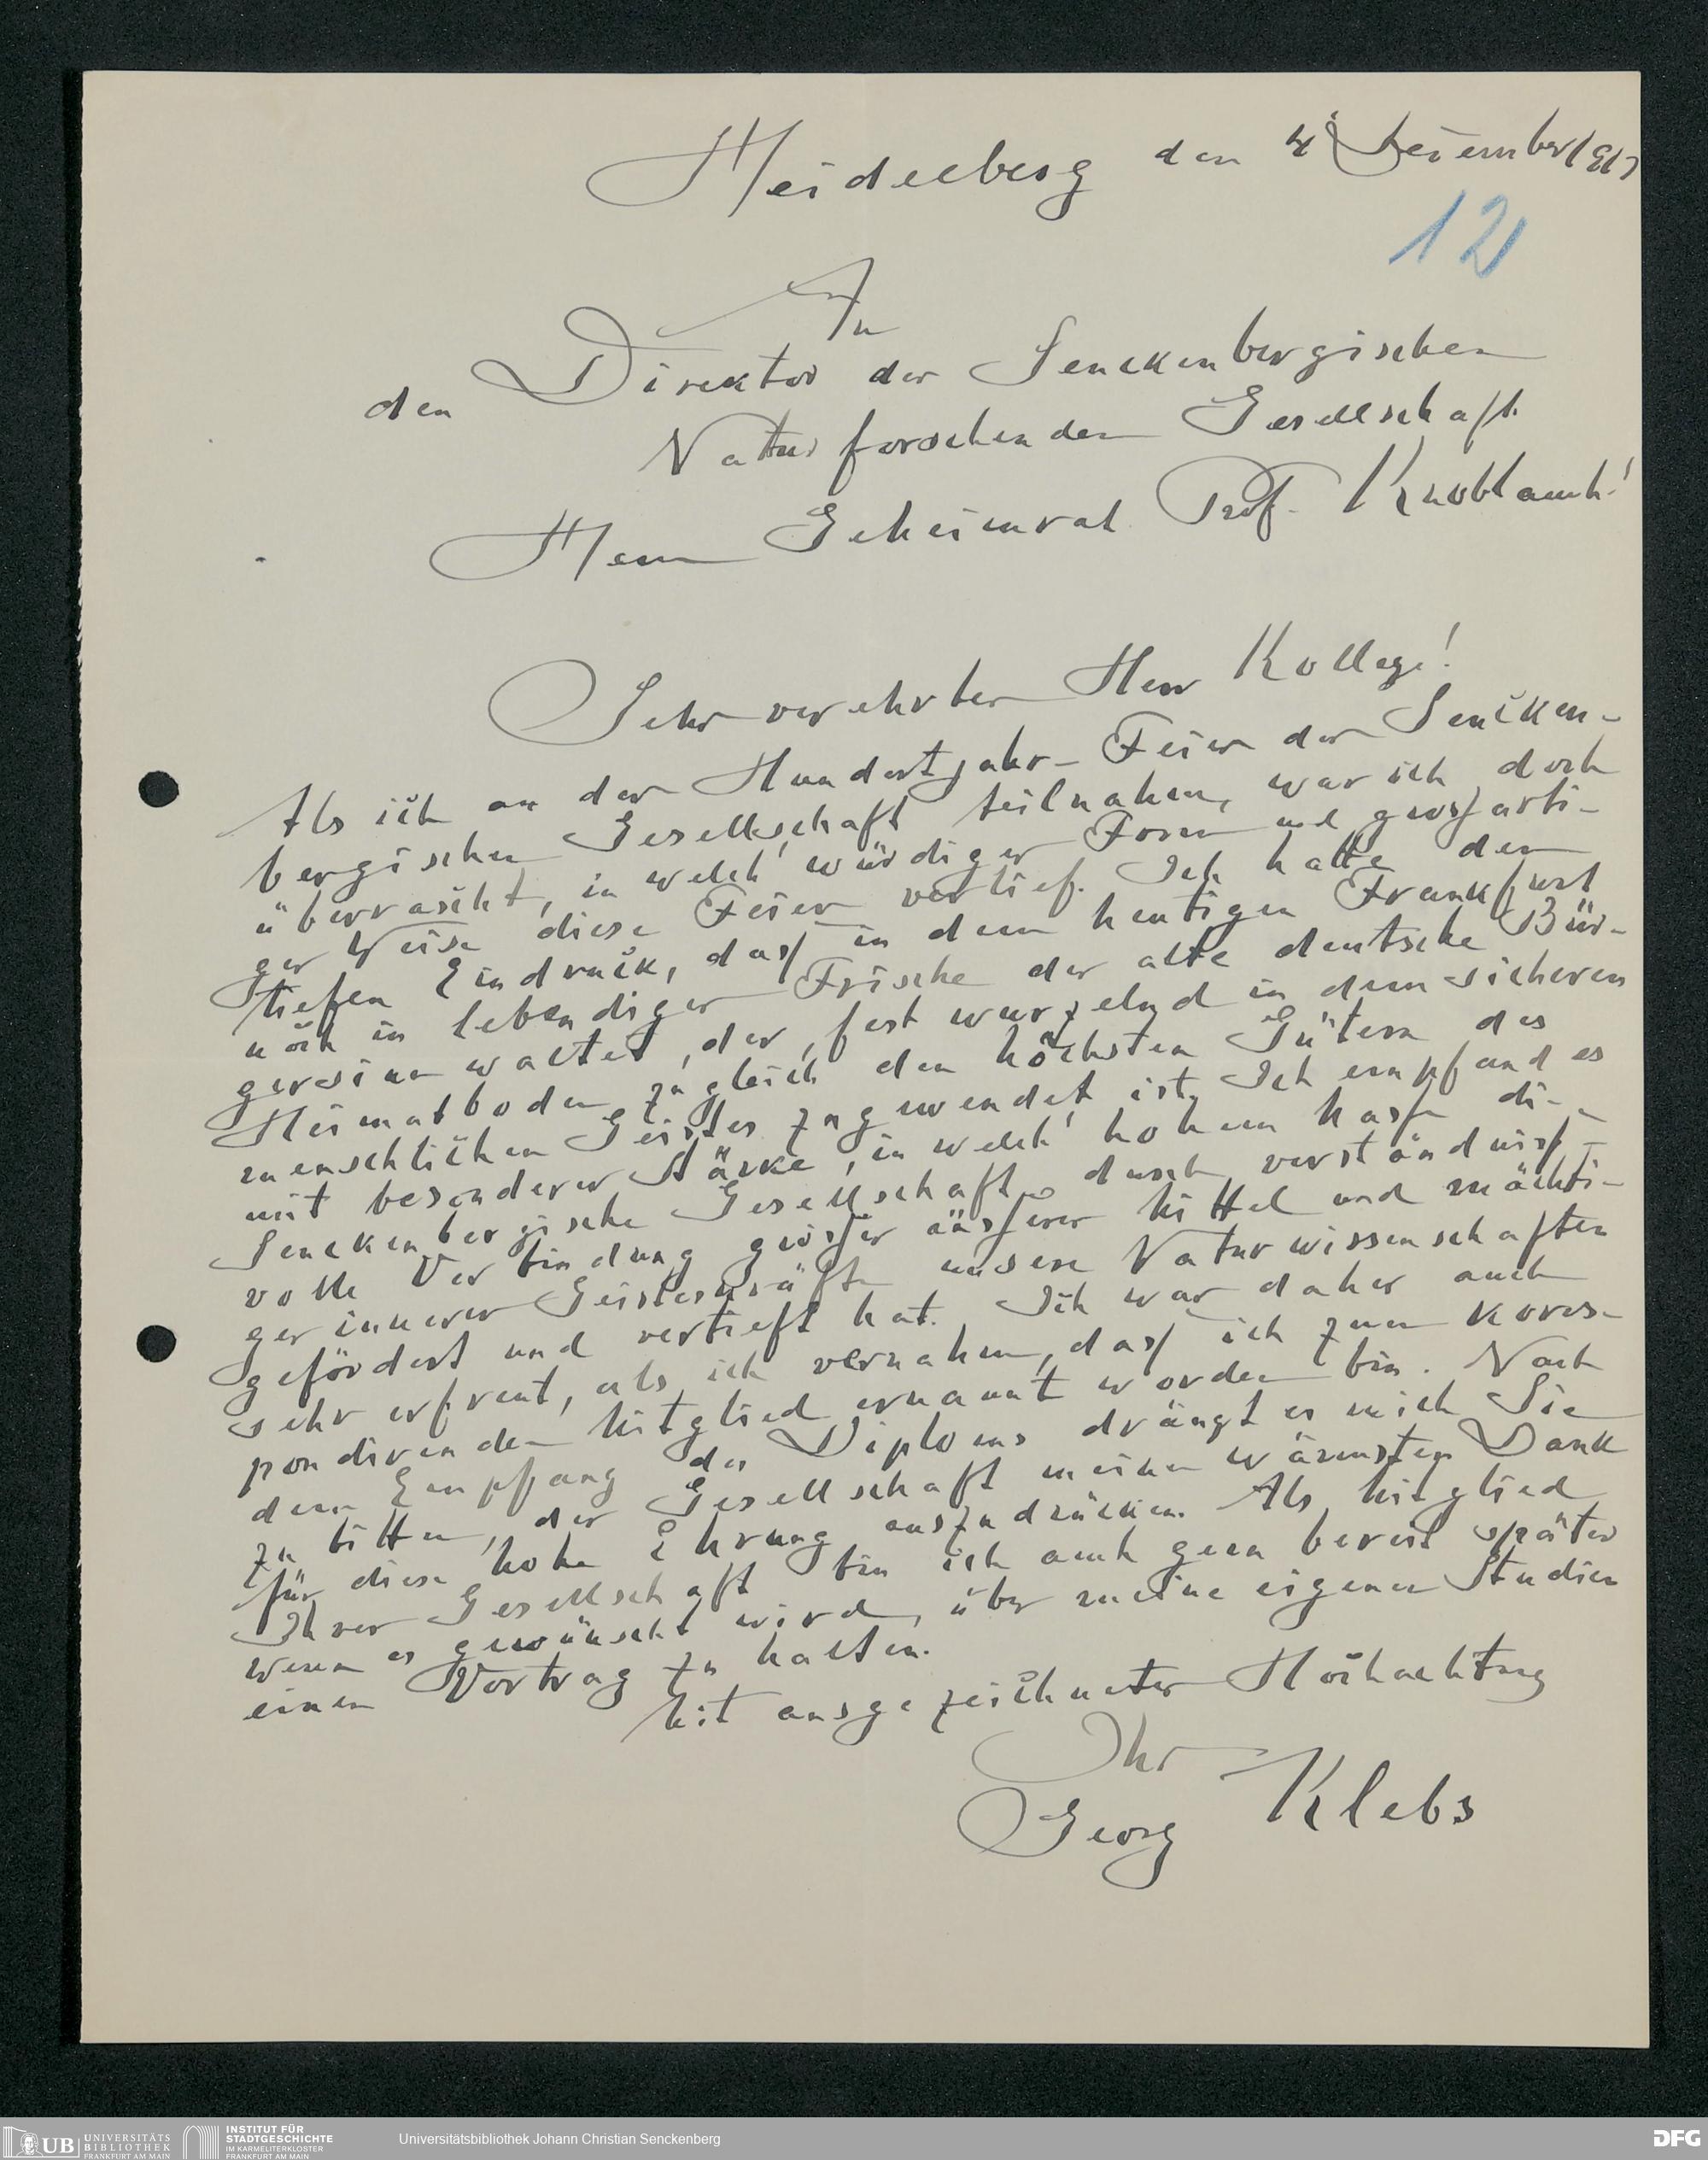 Heidelberg den 4 Dezember 1917
12
An
den Direktor der Senckenbergischen
Naturforschenden Gesellschaft
Herrn Geheimrat Prof. Knoblauch!
Sehr verehrter Herr Kollege!
Als ich an der Hundertjahr-Feier der Sencken-
bergischen Gesellschaft teilnahm, war ich doch
überrascht, in welch' würdiger Form und grosʃarti-
ger Weise diese Feier verlief. Ich hatte den
tiefen Eindruck, dasʃ in dem heutigen Frankfurt
noch in lebendiger Frische der alte deutsche Bür-
gersinn waltet, der, fest wurzelnd in dem sicheren
Heimatboden zugleich den höchsten Gütern des
menschlichen Geistes zugewendet ist. Ich empfand es
mit besonderer Stärke, in welch' hohem Masʃe die
Senckenbergische Gesellschaft durch verständnisʃ-
volle Verbindung grosʃer äusʃerer Mittel und mächti-
ger innerer Geisteskräfte unsere Naturwissenschaften
gefördert und vertieft hat. Ich war daher auch
sehr erfreut, als ich vernahm, dasʃ ich zum korres-
pondirenden Mitglied ernannt worden bin. Nach
dem Empfang des Diploms drängt es mich Sie
zu bitten, der Gesellschaft meinen wärmsten Dank
für diese hohe Ehrung auszudrücken. Als Mitglied
Ihrer Gesellschaft bin ich auch gern bereit später
wenn es gewünscht wird, über meine eigenen Studien
einen Vortrag zu halten.
Mit ausgezeichneter Hochachtung
Ihr
Georg Klebs
UB UNIVERSITÄTS BIBLIOTHEK FRANKFURT AM MAIN
INSTITUT FÜR STADTGESCHICHTE IM KARMELITERKLOSTER FRANKFURT AM MAIN
Universitätsbibliothek Johann Christian Senckenberg
DFG